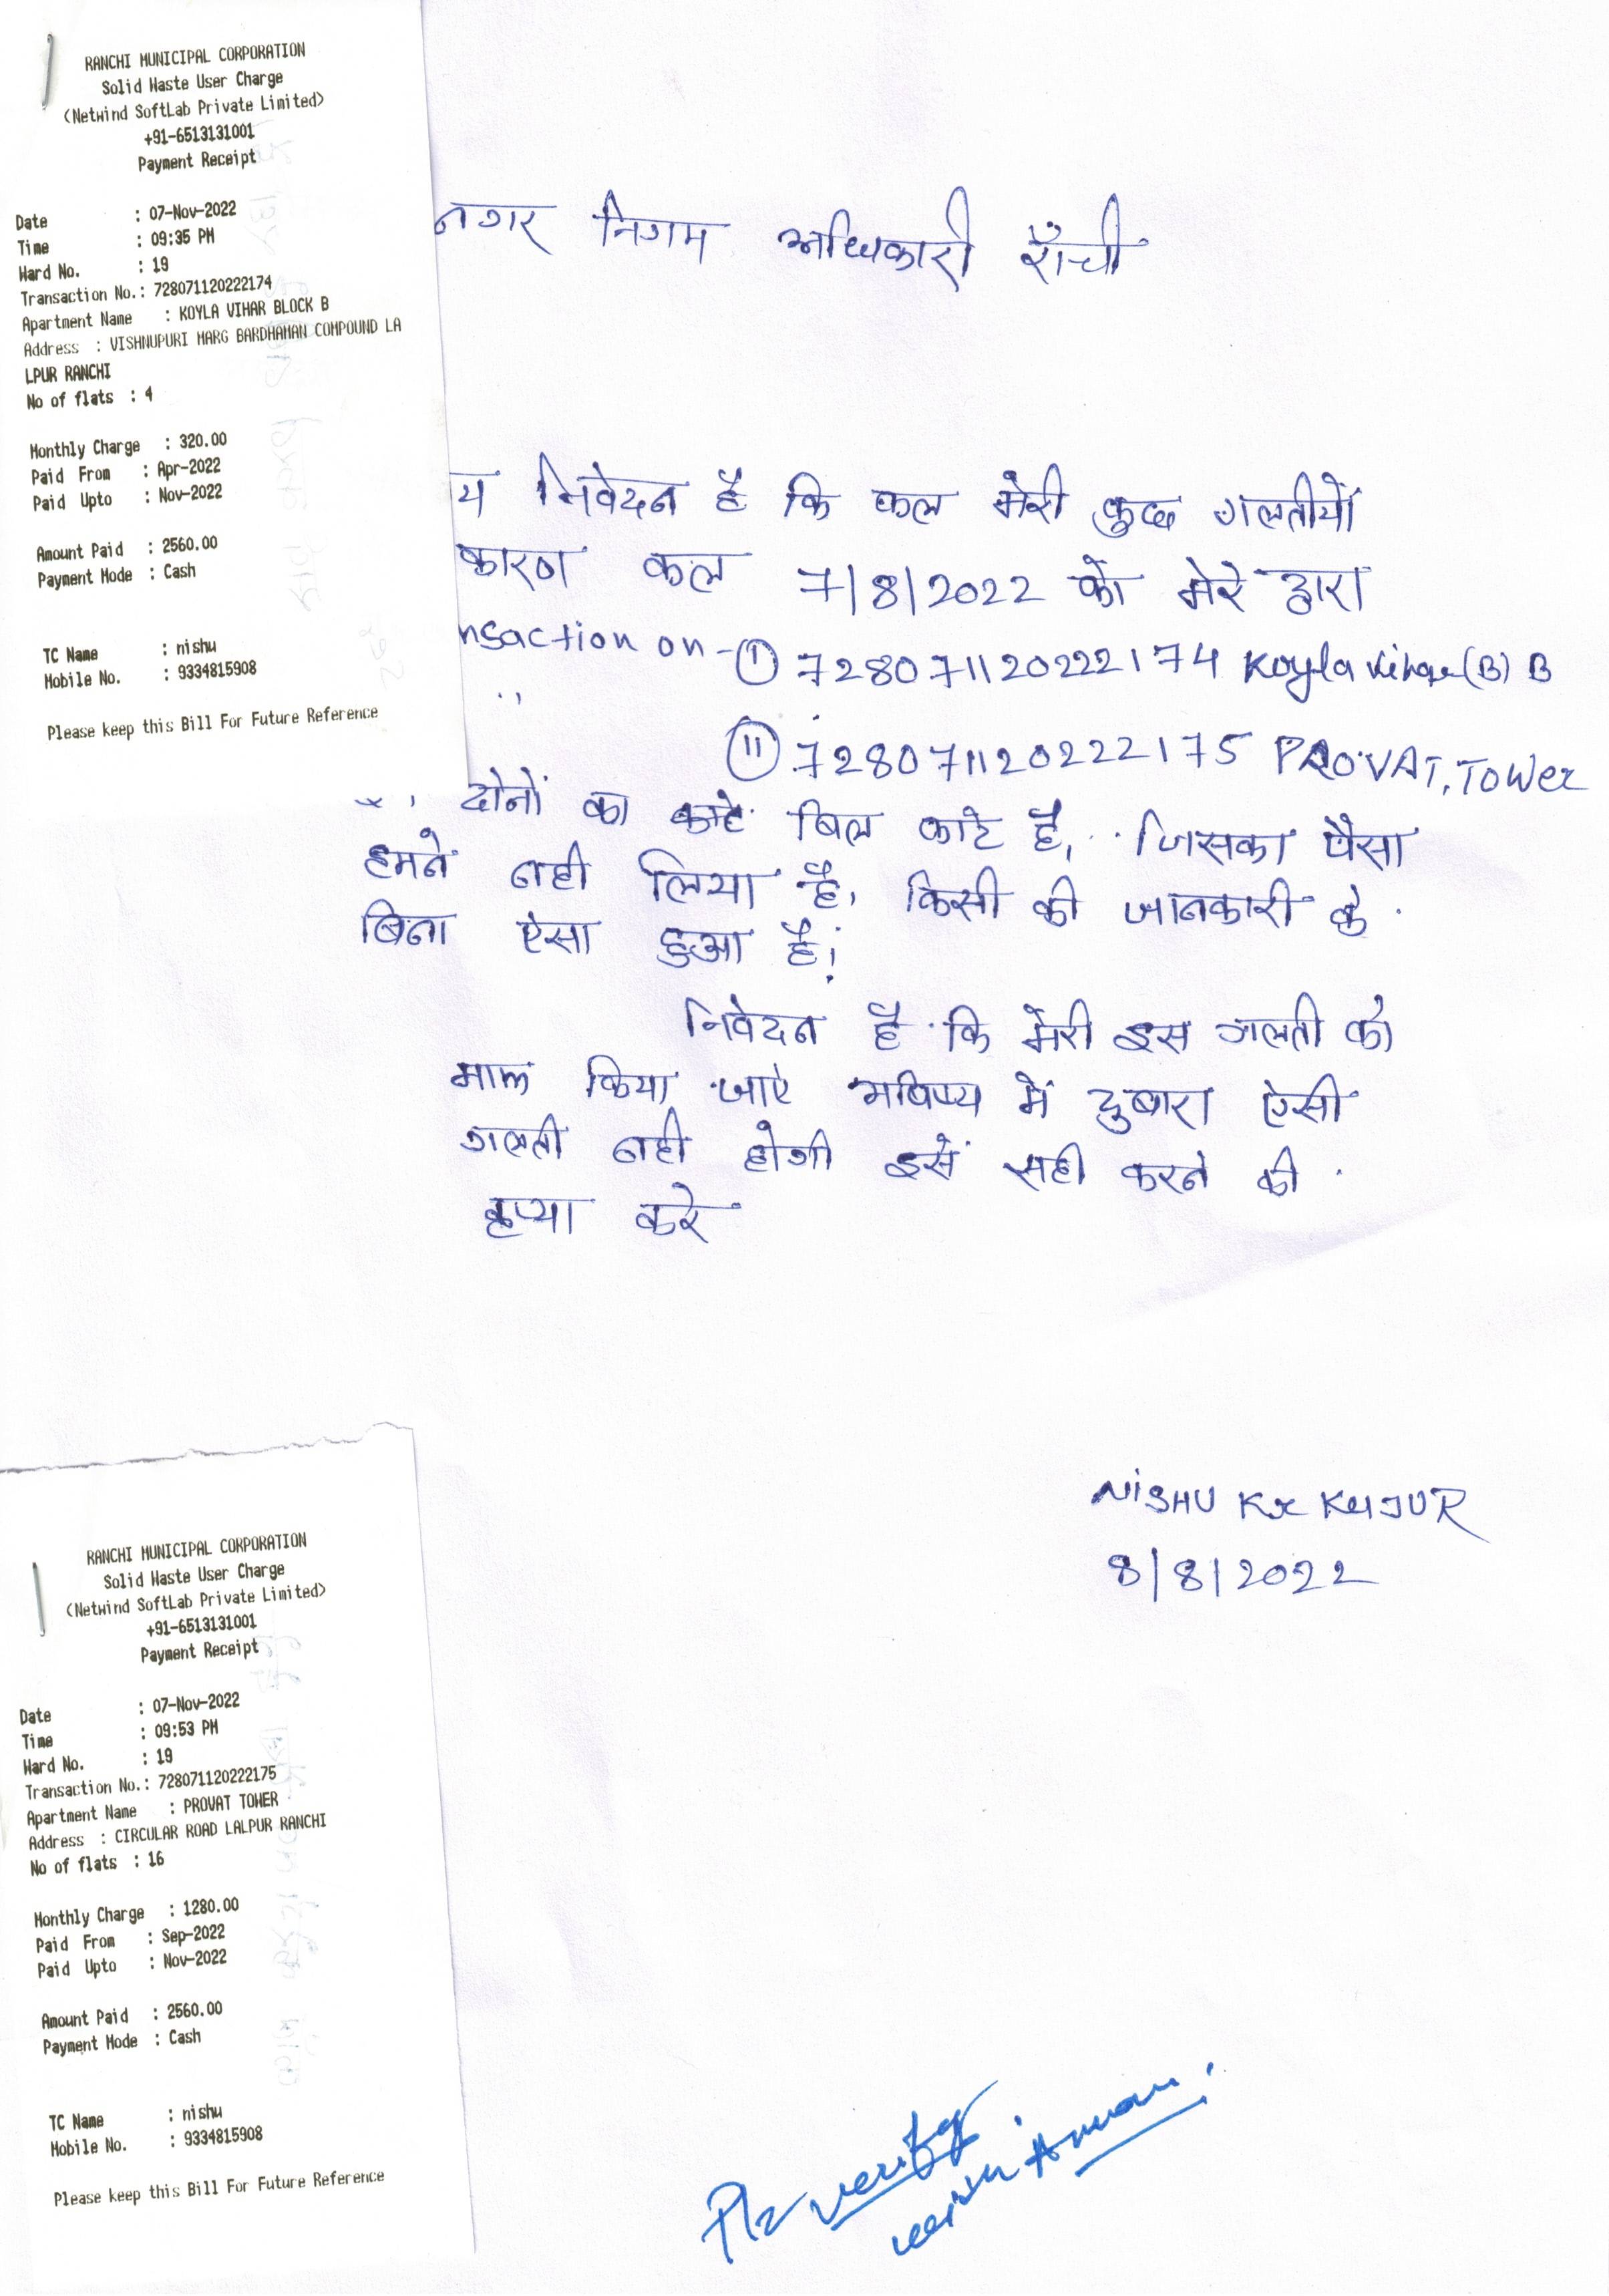 RANCHI MUNICIPAL CORPORATION
Solid Waste User Charge
(Netwind SoftLab Private Limited)
+91-6513131001
Payment Receipt
Date : 07-Nov-2022
Time : 09:35 PM
Ward No. : 19
Transaction No.: 728071120222174
Apartment Name : KOYLA VIHAR BLOCK B
Address : VISHNUPURI MARG BARDHAMAN COMPOUND LA
LPUR RANCHI
No of flats : 4
Monthly Charge : 320.00
Paid From : Apr-2022
Paid Upto : Nov-2022
Amount Paid : 2560.00
Payment Mode : Cash
TC Name : nishu
Mobile No. : 9334815908
Please keep this Bill For Future Reference
नगर निगम अधिकारी राँची
य निवेदन है कि कल मेरी कुछ गलतीयों
कारण कल 7/8/2022 को मेरे द्वारा
nsaction on - (I) 728071120222174 Koyla Vihar (B) B
(II) 728071120222175 PROVAT, TOWER
दोनों का बिल काटे है, जिसका पैसा
हमने नही लिया है, किसी की जानकारी के
बिना ऐसा हुआ है।
निवेदन है कि मेरी इस गलती को
माफ किया जाए भविष्य में दुबारा ऐसी
गलती नही होगी इसे सही करने की
कृप्या करे
NISHU Kr KUJUR
8/8/2022
RANCHI MUNICIPAL CORPORATION
Solid Waste User Charge
(Netwind SoftLab Private Limited)
+91-6513131001
Payment Receipt
Date : 07-Nov-2022
Time : 09:53 PM
Ward No. : 19
Transaction No.: 728071120222175
Apartment Name : PROVAT TOWER
Address : CIRCULAR ROAD LALPUR RANCHI
No of flats : 16
Monthly Charge : 1280.00
Paid From : Sep-2022
Paid Upto : Nov-2022
Amount Paid : 2560.00
Payment Mode : Cash
TC Name : nishu
Mobile No. : 9334815908
Please keep this Bill For Future Reference
Plz verify